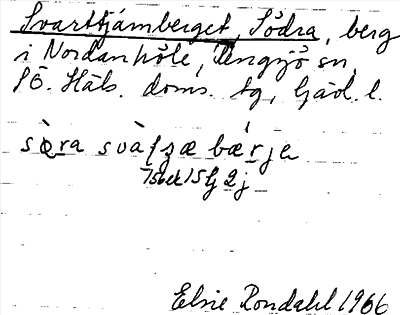 Svarttjärnberget, Södra, berg
i Nordanhöle, Rengsjö sn,
SÖ. Häls. doms. tg, Gävl. l.
sò̱ra svàʃzæ bǽrje
Elsie Rondahl 1966